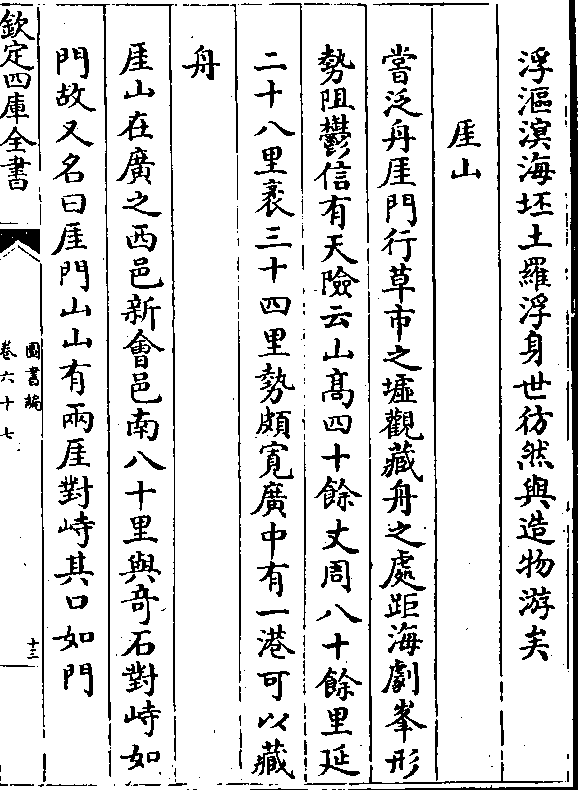 浮漚溟海坯土羅浮身世彷然與造物游矣
厓山
嘗泛舟厓門行草市之墟觀藏舟之處距海劇峯形
勢阻鬱信有天險云山高四十餘丈周八十餘里延
二十八里袤三十四里勢頗寬廣中有一港可以藏
舟
厓山在廣之西邑新會邑南八十里與奇石對峙如
門故又名曰厓門山山有兩厓對峙其口如門
欽定四庫全書
圖書編
卷六十七
十三